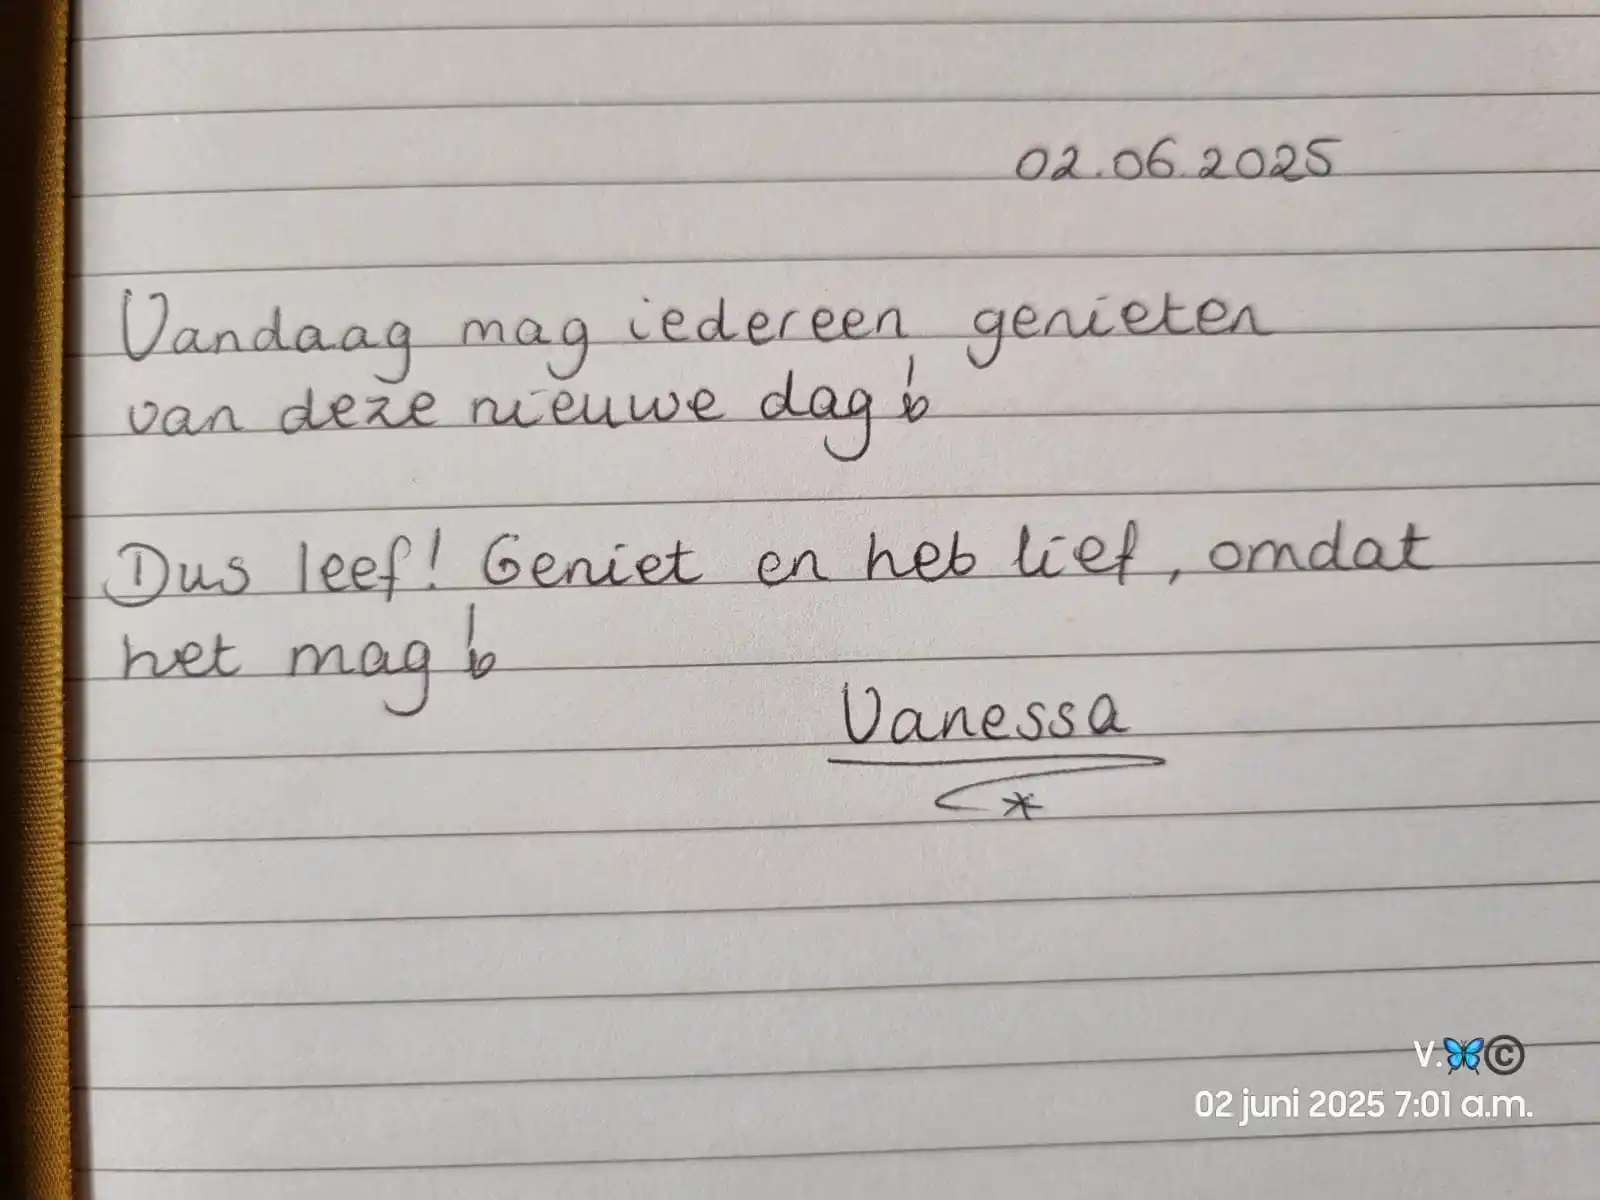 02.06.2025
Vandaag mag iedereen genieten
van deze nieuwe dag!
Dus leef! Geniet en heb lief, omdat
het mag!
Vanessa
*
V.🦋©
02 juni 2025 7:01 a.m.